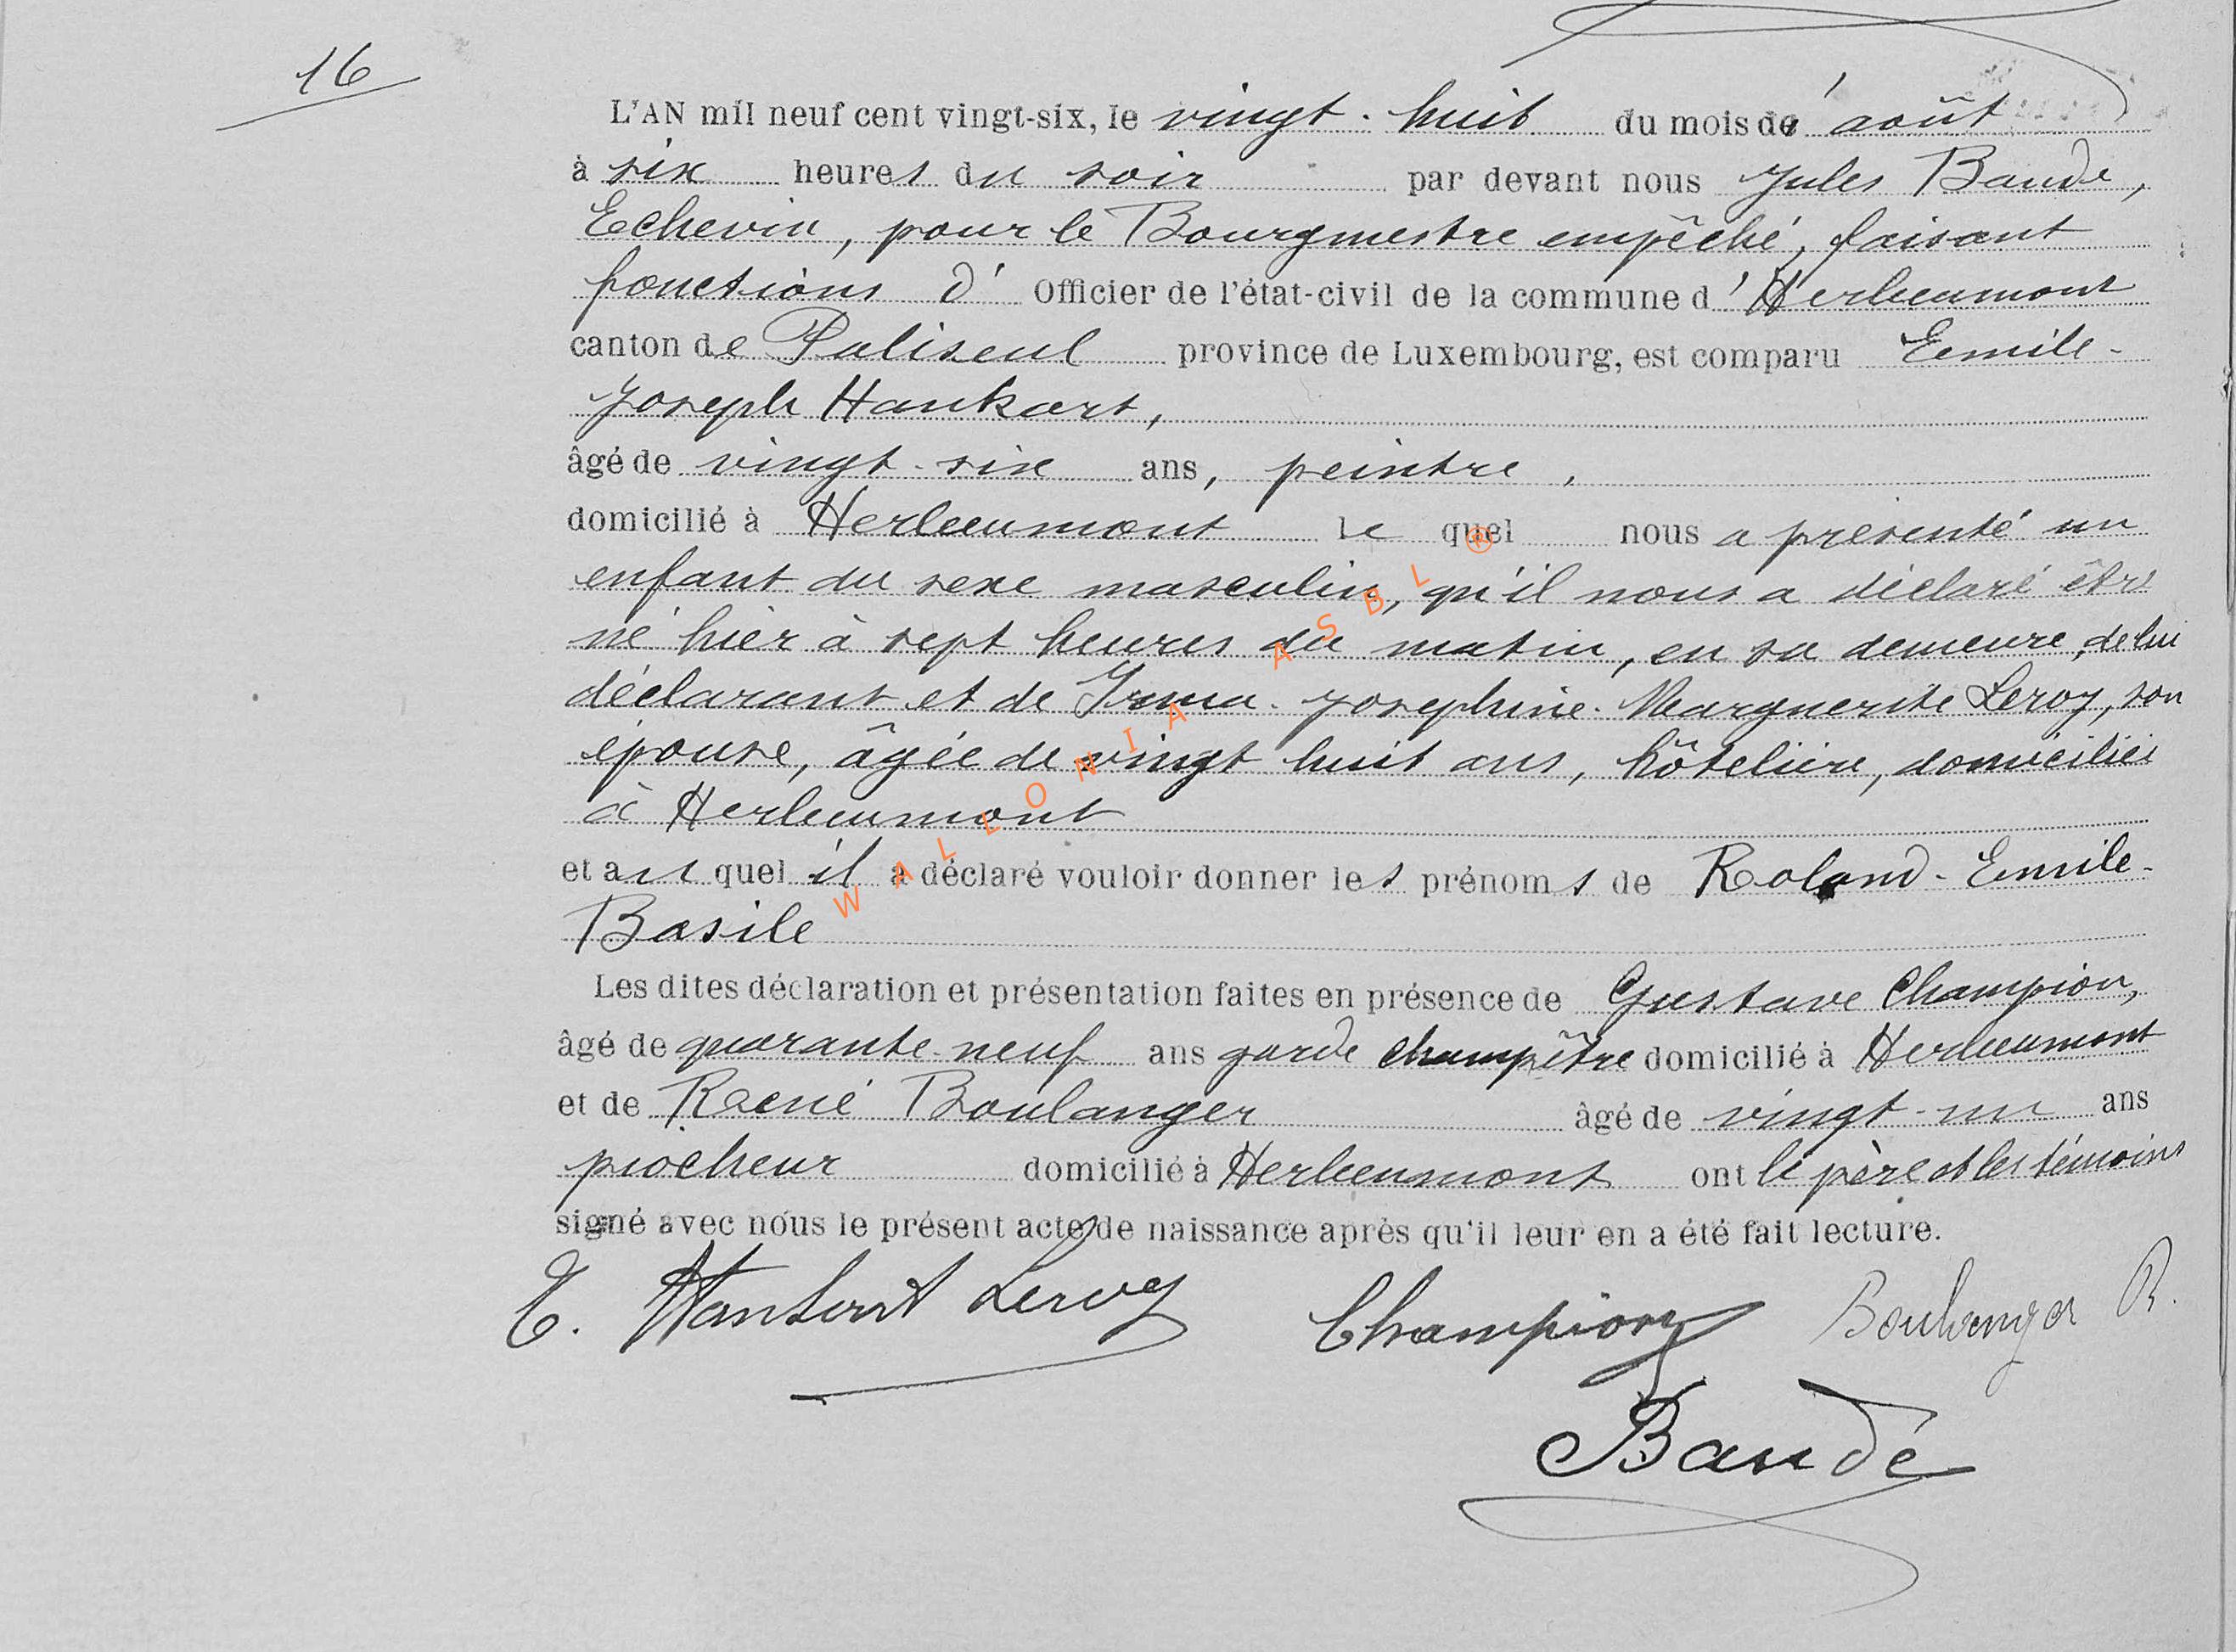 16
L'AN mil neuf cent vingt-six, le vingt-huit du mois d' août
à six heures du soir par devant nous Jules Baudé,
Echevin, pour le Bourgmestre empêché, faisant
fonctions d' Officier de l'état-civil de la commune d'Herbeumont
canton de Paliseul province de Luxembourg, est comparu Emile-
Joseph Hankart,
âgé de vingt-six ans, peintre,
domicilié à Herbeumont le quel nous a présenté un
enfant du sexe masculin, qu'il nous a déclaré être
né hier à sept heures du matin, en sa demeure, de lui
déclarant et de Irma-Joséphine-Marguerite Leroy, son
épouse, âgée de vingt huit ans, hôtelière, domiciliés
à Herbeumont
et au quel il a déclaré vouloir donner les prénoms de Roland-Emile-
Basile
Les dites déclaration et présentation faites en présence de Gustave Champion,
âgé de quarante-neuf ans garde champêtre domicilié à Herbeumont
et de René Boulanger âgé de vingt-un ans
piocheur domicilié à Herbeumont ont le père et les témoins
signé avec nous le présent acte de naissance après qu'il leur en a été fait lecture.
E. Hankart Leroy Champion Boulanger R.
Baudé
WALLONIA ASBL ®